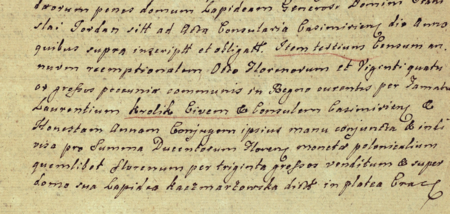 domum penes domum Lapideam Generosi Domini Stanis
slai Jordan sitt ad Acta Consularia Casimiriens die Anno
quibus supra inscriptt et obligatt. Item tertium Censum an-
nuum reemptionalem Octo Florenorum et Viginti quatu
or grossos pecuniæ communis in Regno currentis per Famatu
Laurentium Krolik Civem & Consulem Casimiriens &
Honestam Annam Conjugem ipsius manu conjuncta & indi
visa pro Summa Ducentorum Floren monetæ polonicalium
quemlibet Florenum per triginta grossos venditum & super
domo sua Lapidea Kaczmarzowska dict in platea Crac